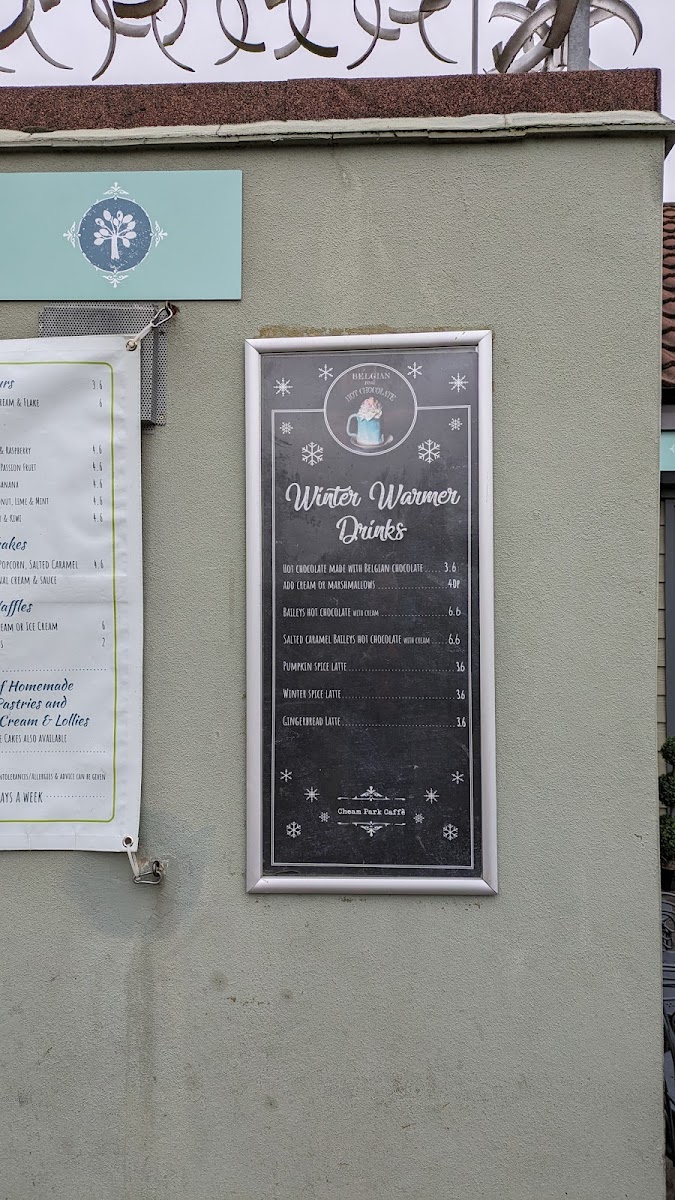 urs 3.6
eam & Flake 6
& Raspberry 4.6
Passion Fruit 4.6
anana 4.6
nut, Lime & Mint 4.6
& Kiwi 4.6
akes
Popcorn, Salted Caramel 4.6
nal cream & sauce
affles
eam or Ice Cream 6
s 2
f Homemade
Pastries and
Cream & Lollies
e Cakes also available
ntolerances/allergies & advice can be given
ays a week
Belgian
Hot Chocolate
Winter Warmer
Drinks
Hot chocolate made with Belgian chocolate ..... 3.6
add cream or marshmallows ..... 40p
Baileys hot chocolate with cream ..... 6.6
Salted caramel Baileys hot chocolate with cream ..... 6.6
Pumpkin spice latte ..... 3.6
Winter spice latte ..... 3.6
Gingerbread Latte ..... 3.6
Cheam Park Caffè